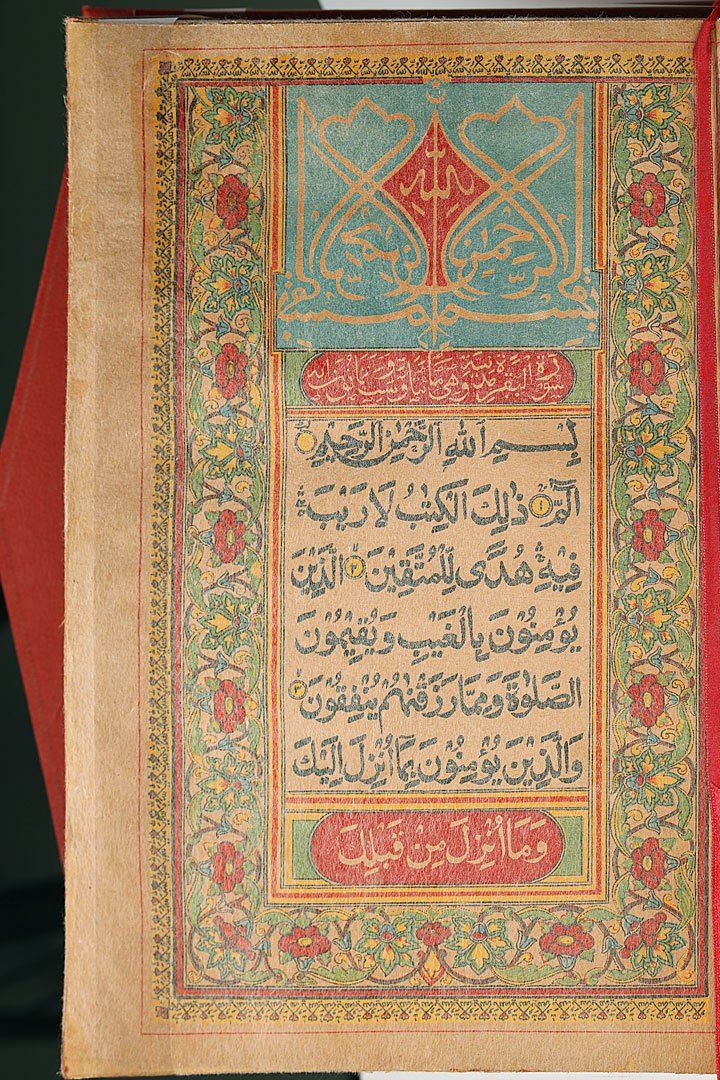 بسم الله الرحمن الرحيم
سورة البقرة مدنية وهي
بِسْمِ اللهِ الرَّحْمٰنِ الرَّحِيْمِ
الٓمّٓ ١ ذٰلِكَ الْكِتٰبُ لَا رَيْبَ
فِيْهِ هُدًى لِّلْمُتَّقِيْنَ ٢ الَّذِيْنَ
يُؤْمِنُوْنَ بِالْغَيْبِ وَيُقِيْمُوْنَ
الصَّلٰوةَ وَمِمَّا رَزَقْنٰهُمْ يُنْفِقُوْنَ ٣
وَالَّذِيْنَ يُؤْمِنُوْنَ بِمَآ اُنْزِلَ اِلَيْكَ
وَمَآ اُنْزِلَ مِنْ قَبْلِكَ